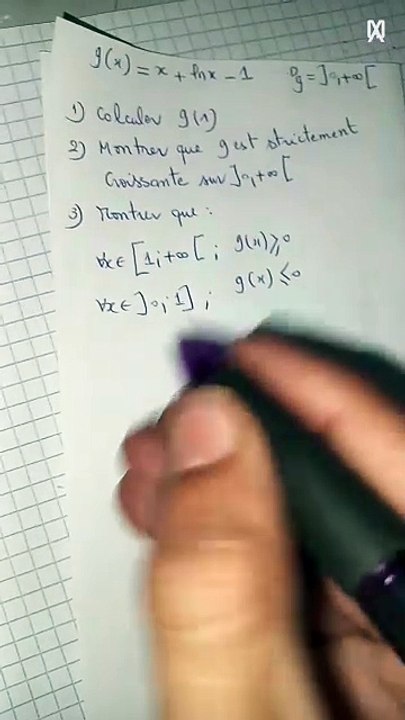 g(x) = x + ln x - 1 Dg = ]0,+∞[
1) Calculer g(1)
2) Montrer que g est strictement
Croissante sur ]0,+∞[
3) Montrer que :
∀x ∈ [1;+∞[ ; g(x) ⩾ 0
∀x ∈ ]0;1] ; g(x) ⩽ 0